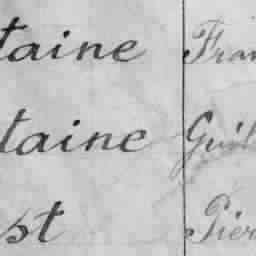 taine Fran
taine Guil
st Pier